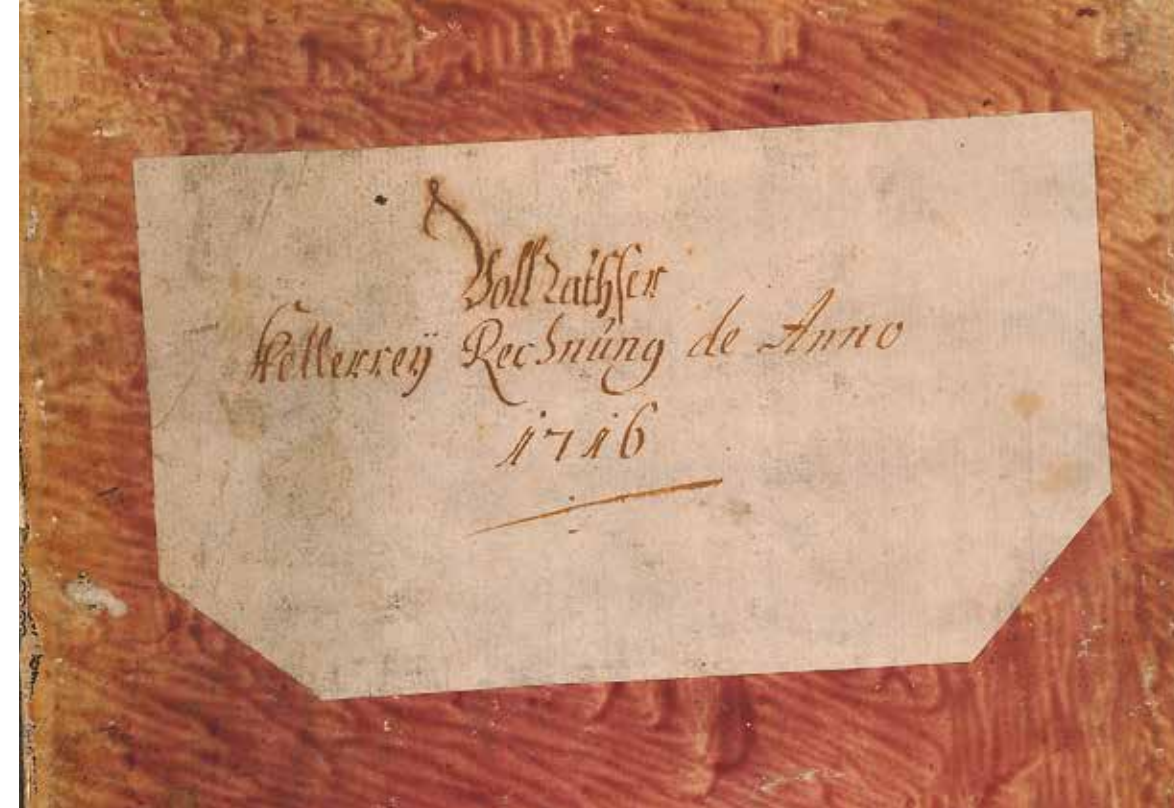 Vollrathser
Kellerreÿ Rechnüng de Anno
1716